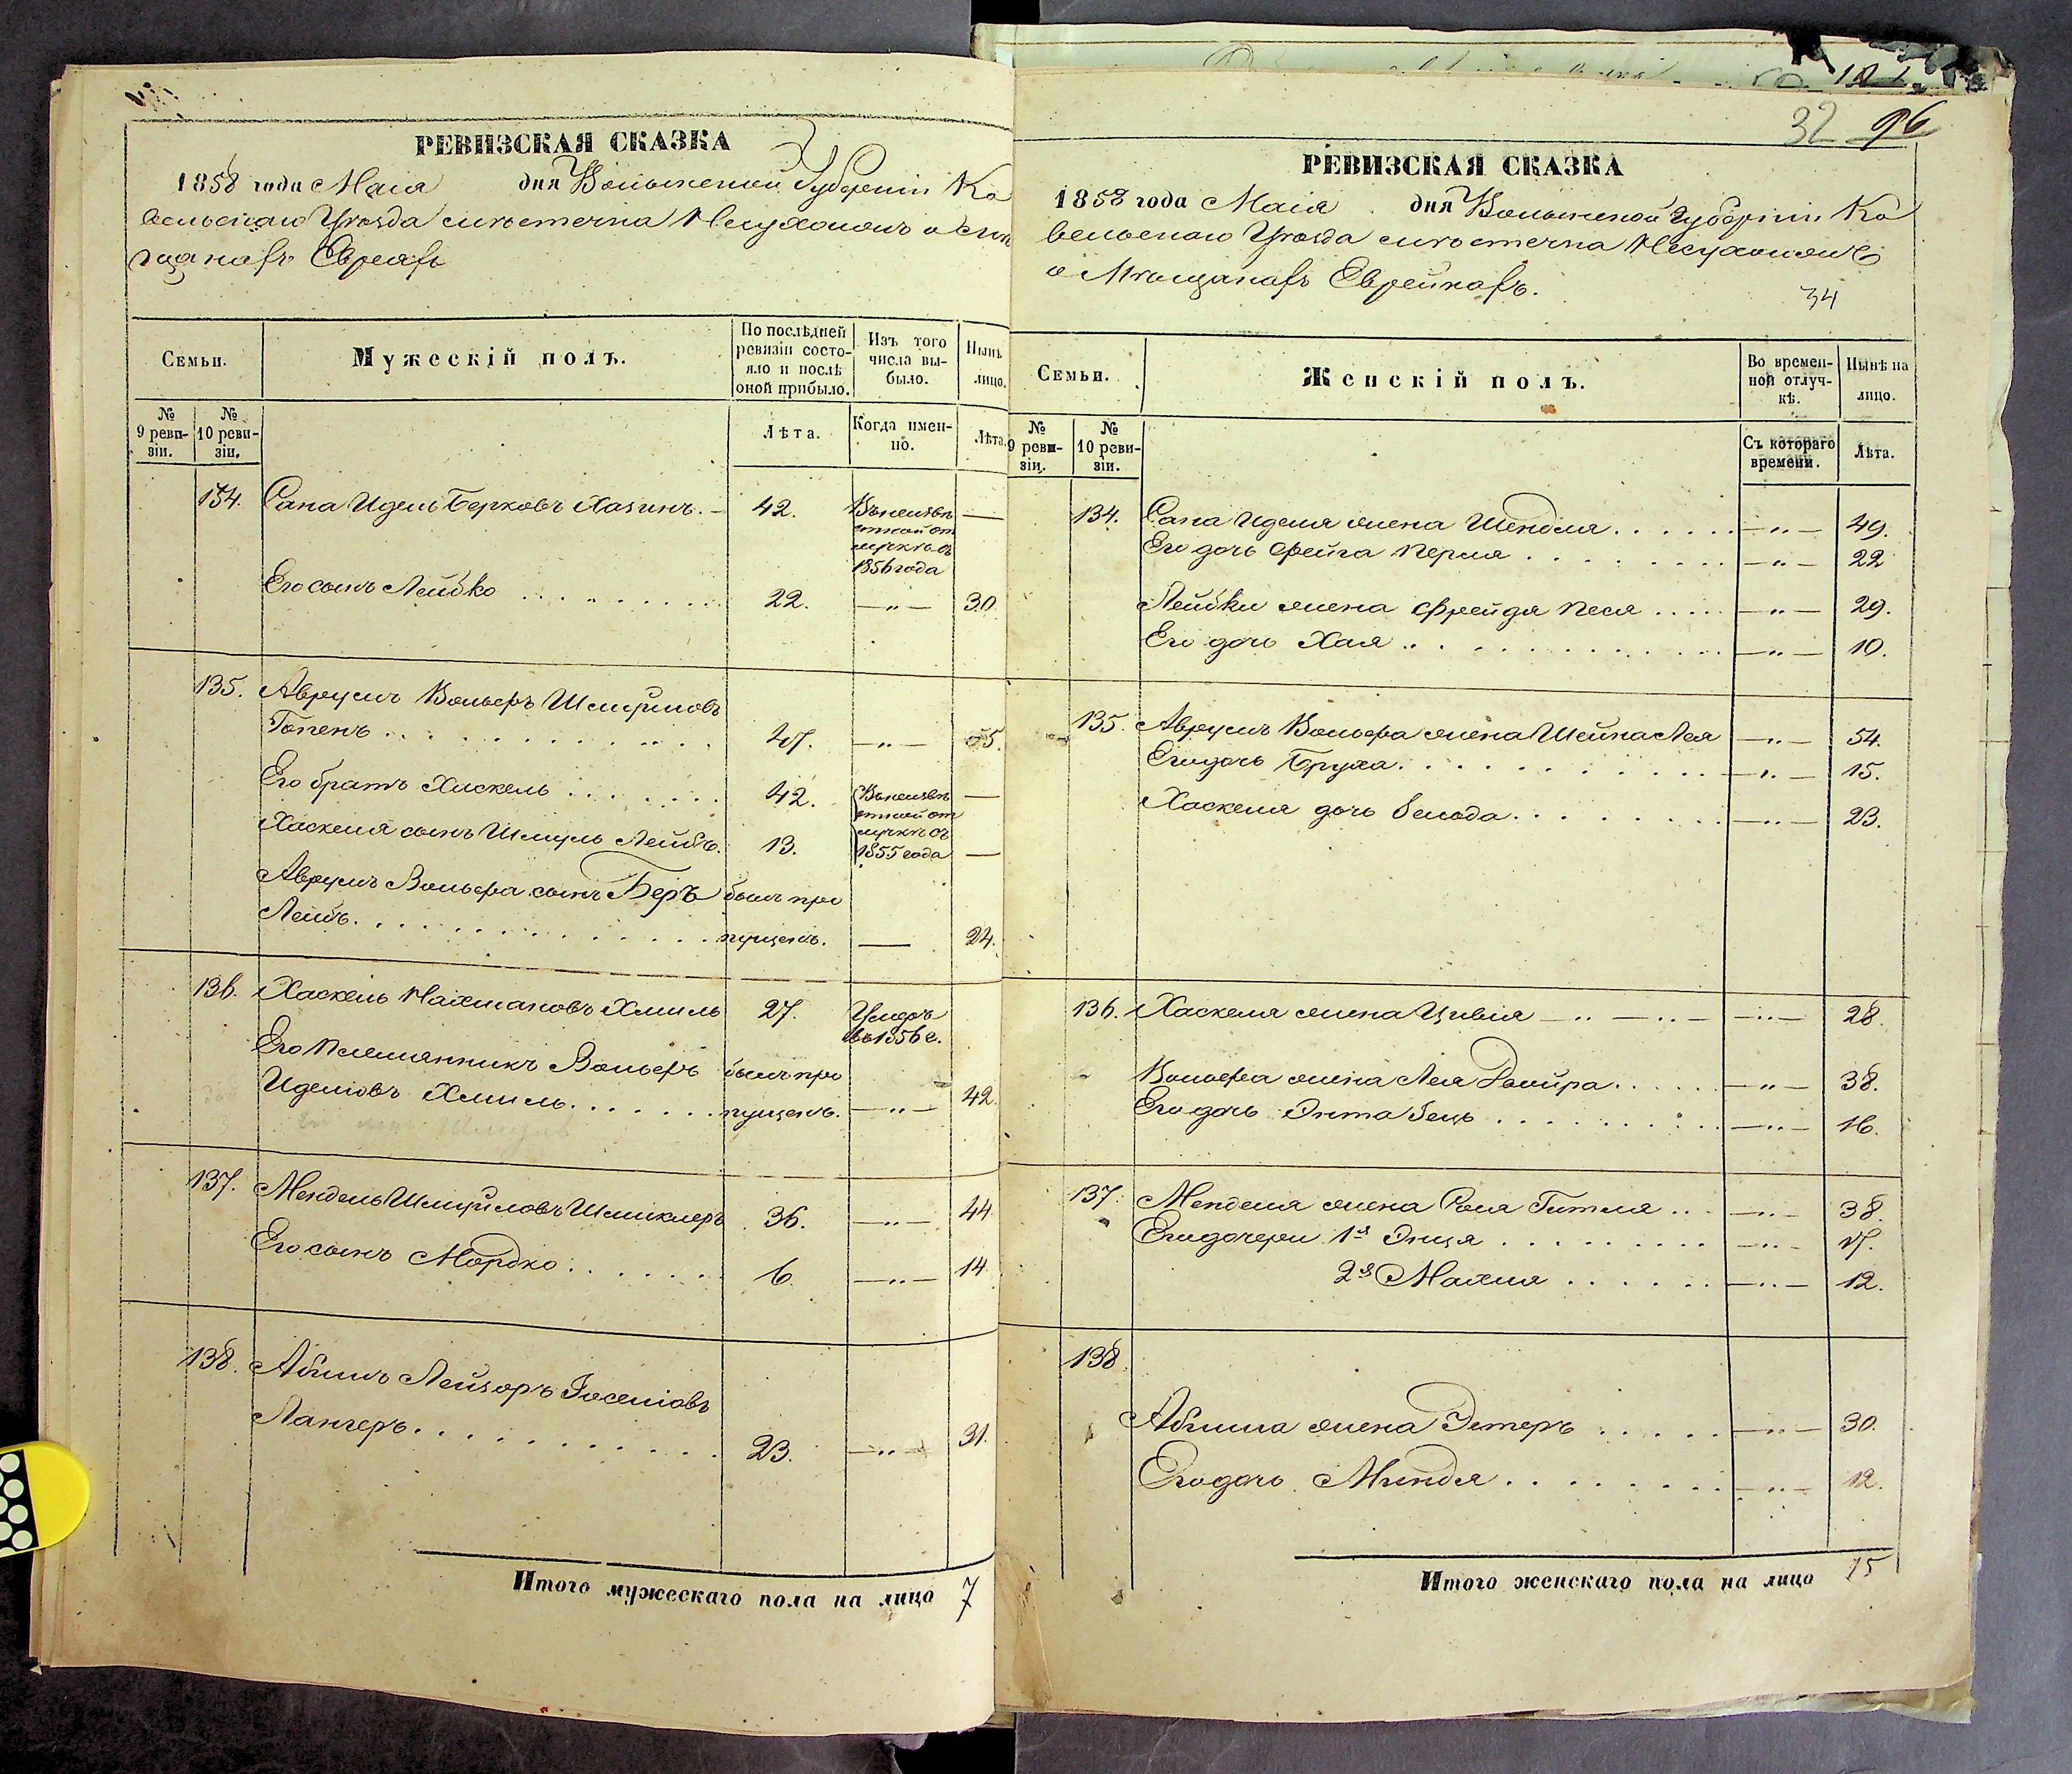 РЕВИЗСКАЯ СКАЗКА
1858 года Маія дня Волынской Губерніи Ко
вельскаго Уѣзда мѣстечка Несухоежъ о Мѣ
щанахъ Евреяхъ
Семьи.
Мужескій полъ.
По послѣдней ревизіи состояло и послѣ оной прибыло.
Изъ того числа выбыло.
Нынѣ
лицо.
№ 9 ревизіи.
№ 10 ревизіи.
Лѣта.
Когда именно.
Лѣта.
134. Сана Идель Берковъ Хазинъ. 42. Въ неизвѣ
стной от
лучкѣ съ
1856 года —
Его сынъ Лейбко 22. —"— 30.
135. Аврумъ Вольфъ Шмуйловъ
Гопенъ 47. —"— 55.
Его братъ Хаскель 42. Въ неизвѣ —
стной от
Хаскеля сынъ Шмуль Лейбъ. 13. лучкѣ съ
1855 года —
Аврумъ Вольфа сынъ Беръ былъ про
Лейбъ. пущенъ. — 24.
136. Хаскель Нахмановъ Хмиль 27. Умеръ
въ 1856 г.
Его племянникъ Вольфъ былъ про
Иделіовъ Хмиль. пущенъ. —"— 42.
137. Мендель Шмуйловъ Шмиклеръ 36. —"— 44
Его сынъ Мордко 6. —"— 14
138. Абишъ Лейзоръ Іоселіовъ
Лангеръ. 23. —"— 31.
Итого мужескаго пола на лицо 7
32 96
РЕВИЗСКАЯ СКАЗКА
1858 года Маія дня Волынской Губерніи Ко
вельскаго Уѣзда мѣстечка Несухоежъ
о Мѣщанахъ Еврейкахъ.
34
Семьи.
Женскій полъ.
Во временной отлучкѣ.
Нынѣ на лицо.
№ 9 ревизіи.
№ 10 ревизіи.
Съ котораго времени.
Лѣта.
134. Сана Иделя жена Шендля —"— 49.
Его дочь Фейга Перля —"— 22
Лейбки жена Фрейда Песя —"— 29.
Его дочь Хая —"— 10.
135. Аврумъ Вольфа жена Шейна Лея —"— 54.
Его дочь Бруха —"— 15.
Хаскеля дочь —"— 23.
136. Хаскеля жена Цивія —"— 28.
Вольфа жена Лея Двойра —"— 38.
Его дочь Энта —"— 16.
137. Менделя жена Роля Гитля —"— 38.
Его дочери 1я Энця —"— 17.
2я Махля —"— 12.
138.
Абиша жена Эстеръ —"— 30.
Его дочь Миндя —"— 12.
Итого женскаго пола на лицо 15